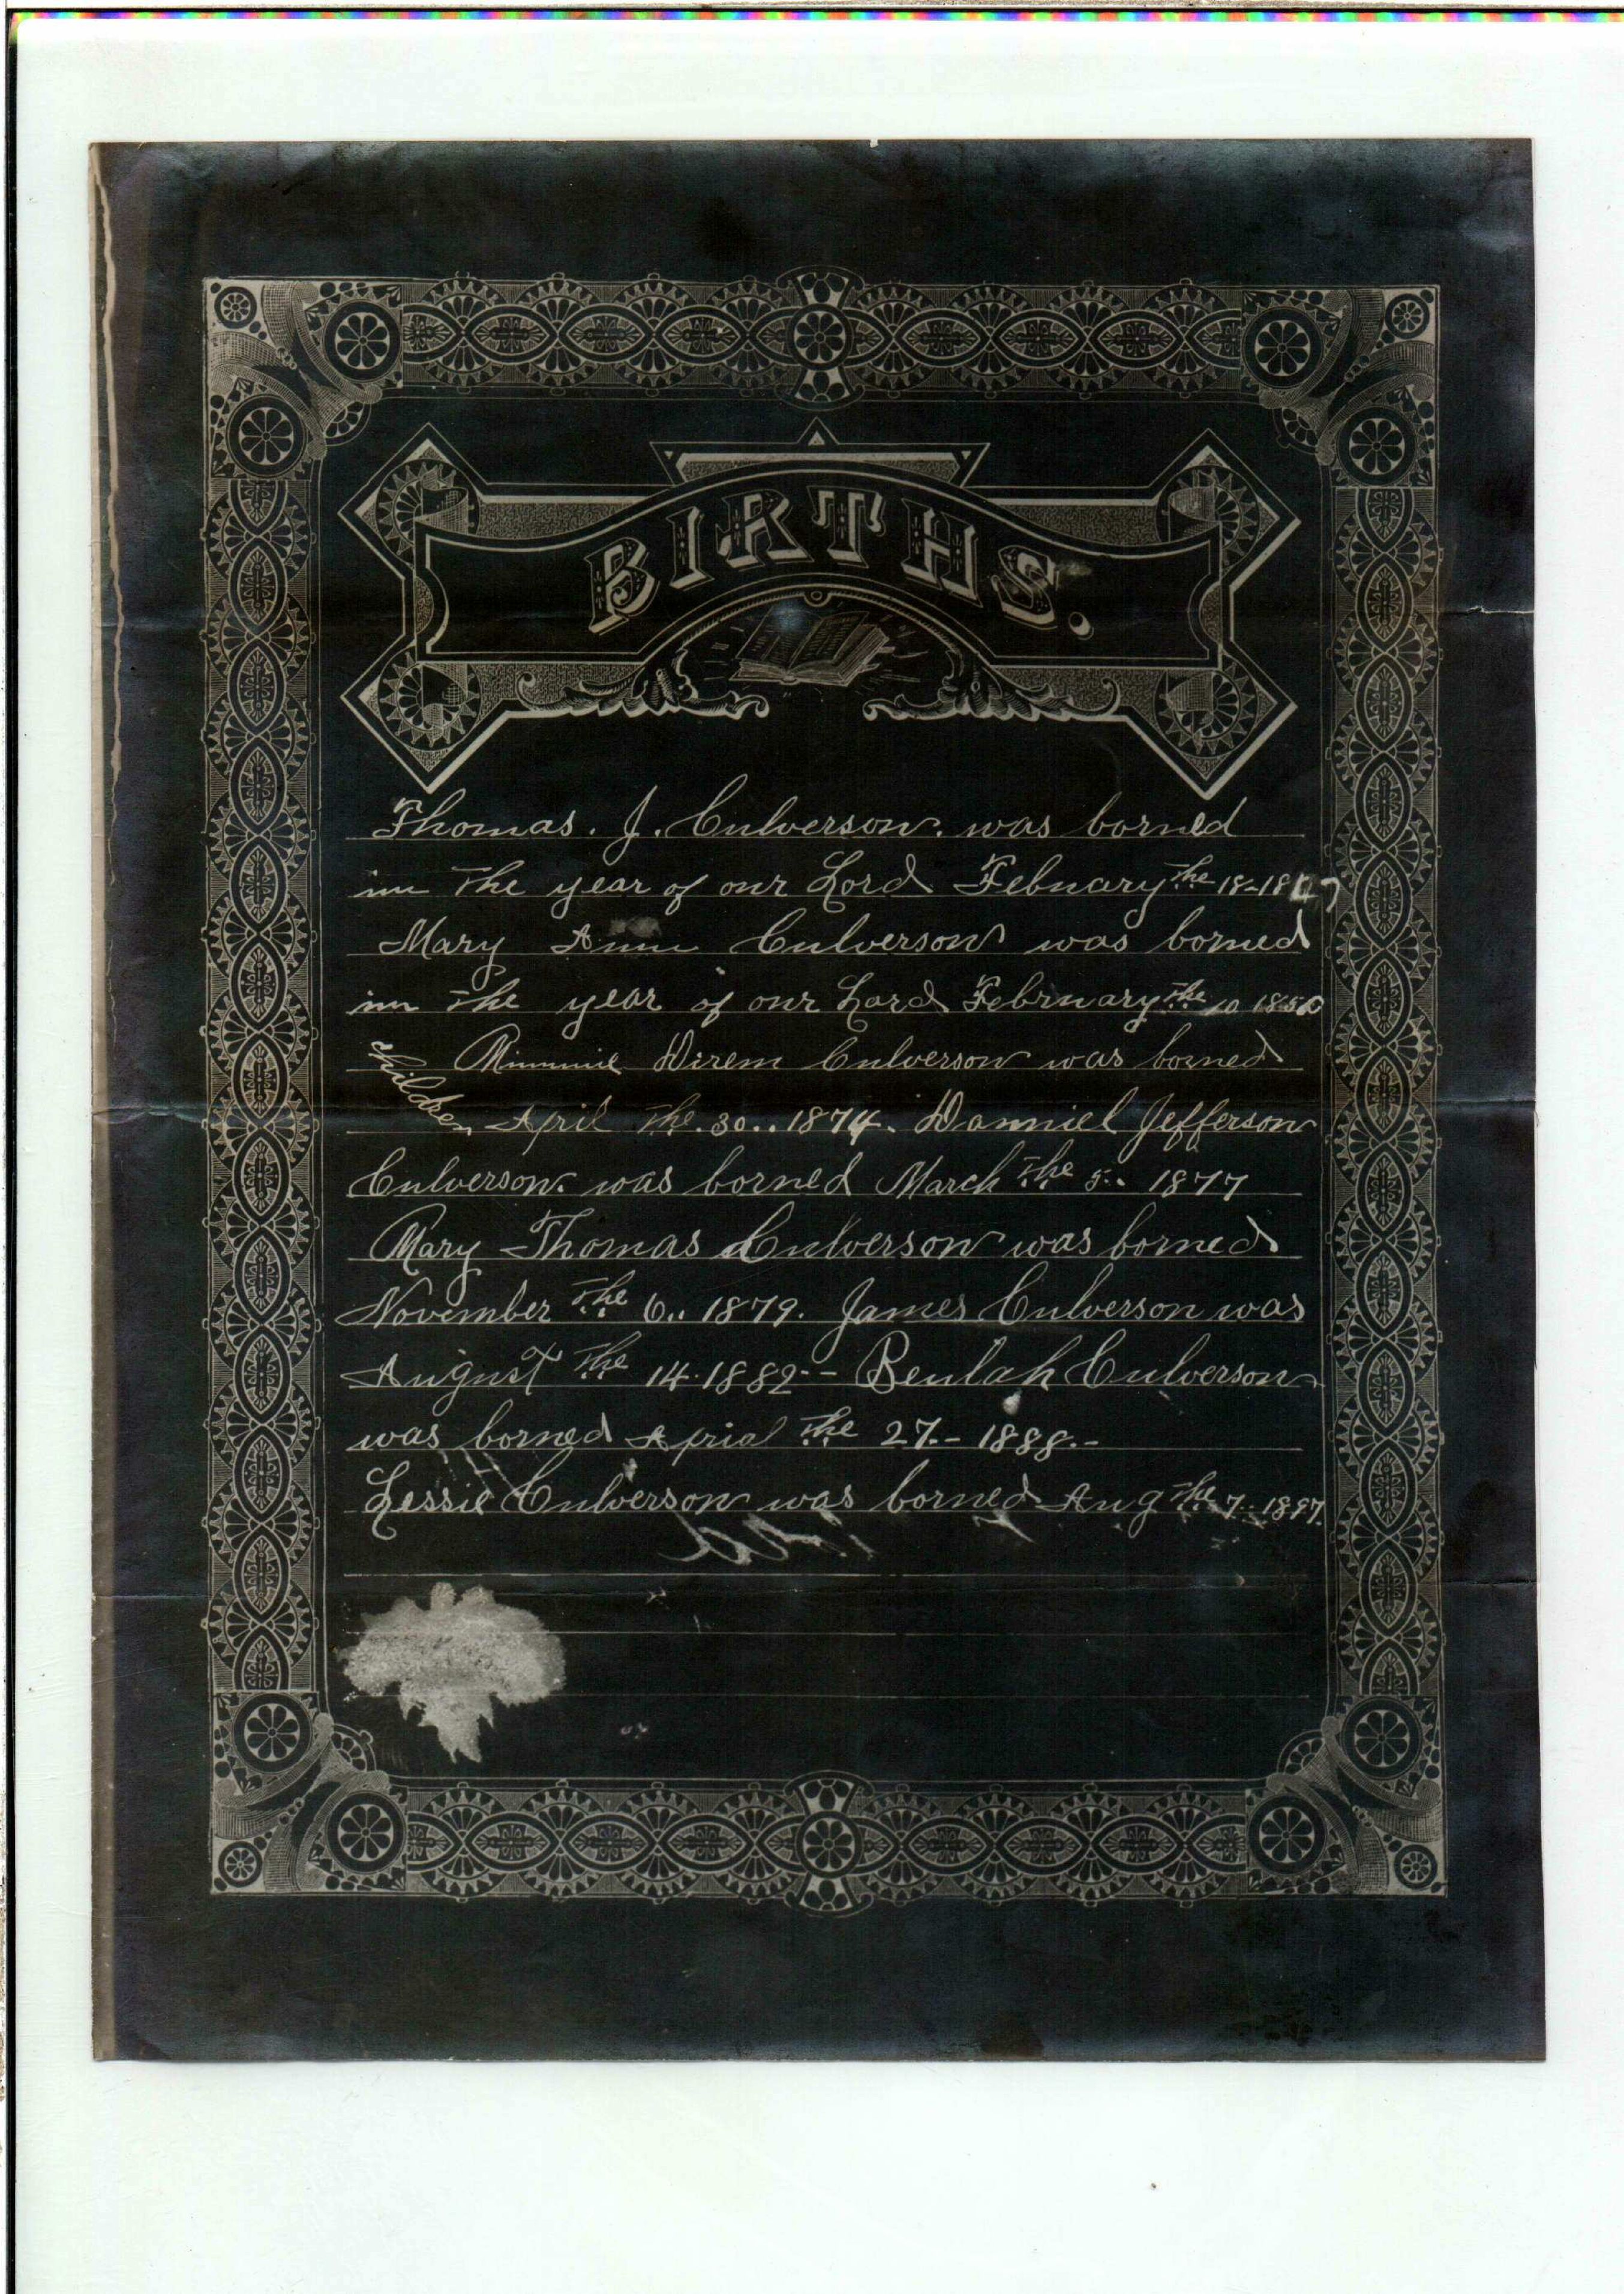 BIRTHS.
Thomas. J. Culverson. was borned
in the year of our Lord Febuary the 18-1847
Mary Ann Culverson was borned
in the year of our Lord February the 10 1850
children
Minnnie Culverson was borned
April the. 30.. 1874. Danniel Jefferson
Culverson. was borned March the 5.. 1877
Mary Thomas Culverson was borned
November the 6.. 1879. James Culverson was
August the 14-1882-- Beulah Culverson
was borned Aprial the 27.- 1888.-
Lessie Culverson was borned Aug the 7- 1897.